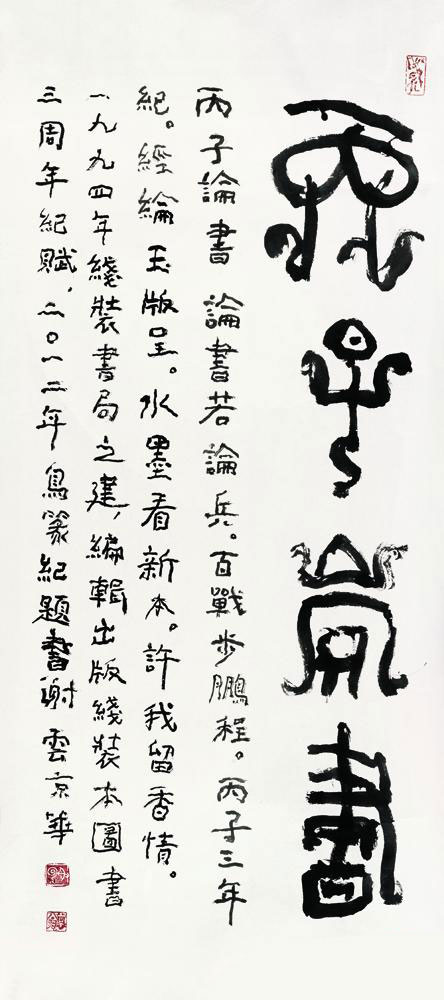 丙子論書
丙子論書 論書若論兵。百戰步鵬程。丙子三年
紀。經綸玉版呈。水墨看新本。許我留香情。
一九九四年綫裝書局之建，編輯出版綫裝本圖書
三周年紀賦，二〇一二年鳥篆紀題書謝雲京華